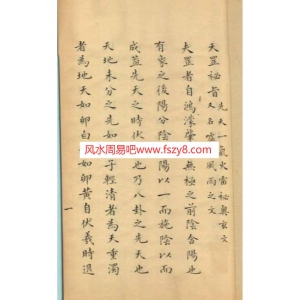 天罡祕旨
先天一氣火雷祕奧玄文
又名噓風雨之文
夫罡者自鴻濛肇無極之前陰合陽也
有象之後陽分陰陽以一而施陰以而
成蓋先天之時伏也乃八卦之先天也
天地未分之先如子輕清者為天重濁
者為地天如卵白卵黃自伏羲時退
一
风水周易吧
www.fszy8.com